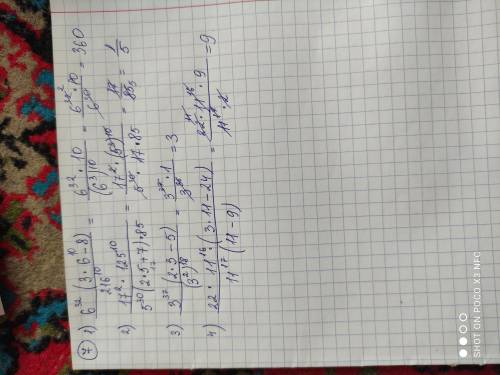 ⑦ 1) 6³² (3 · 6 − 8) / 216¹⁰ = 6³² · 10 / (6³)¹⁰ = 6³² · 10 / 6³⁰ = 360
2) 17² · 125¹⁰ / 5³⁰ (2 · 5 + 7) · 85 = 17² · (5³)¹⁰ / 5³⁰ · 17 · 85 = 17 / 85 = 1 / 5
3) 3³⁷ (2 · 3 − 5) / (3²)¹⁸ = 3³⁷ · 1 / 3³⁶ = 3
4) 22 · 11¹⁶ · (3 · 11 − 24) / 11¹⁷ (11 − 9) = 22 · 11¹⁶ · 9 / 11¹⁷ · 2 = 9
SHOT ON POCO X3 NFC